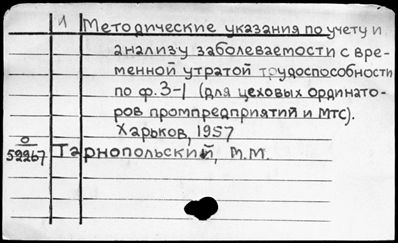 1 Методические указания по учету и
анализу заболеваемости с вре-
менной утратой трудоспособности
по ф. 3-1 (для цеховых ординато-
ров промпредприятий и МТС).
Харьков, 1957
О
59267 Тарнопольский, М.М.